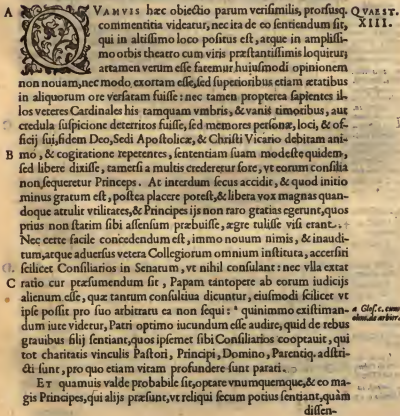 A QVAMVIS hæc obiectio parum verisimilis, prorsusq. QVAEST.
commentitia videatur, nec ita de eo sentiendum sit, XIII.
qui in altissimo loco positus est, atque in amplissi-
mo orbis theatro cum viris præstantissimis loquitur;
attamen verum esse fatemur huiusmodi opinionem
non nouam, nec modo exortam esse, sed superioribus etiam ætatibus
in aliquorum ore versatam fuisse: nec tamen propterea sapientes il-
los veteres Cardinales his tamquam vmbris, & vanis timoribus, aut
credula suspicione deterritos fuisse, sed memores personæ, loci, & of-
ficij sui, fidem Deo, Sedi Apostolicæ, & Christi Vicario debitam ani-
B mo, & cogitatione repetentes, sententiam suam modeste quidem,
sed libere dixisse, tametsi a multis crederetur fore, vt eorum consilia
non sequeretur Princeps. At interdum secus accidit, & quod initio
minus gratum est, postea placere potest, & libera vox magnas quan-
doque attulit vtilitates, & Principes ijs non raro gratias egerunt, quos
prius non statim sibi assensum præbuisse, ægre tulisse visi erant.
Nec certe facile concedendum est, immo nouum nimis, & inaudi-
tum, atque aduersus vetera Collegiorum omnium instituta, accersiri
scilicet Consiliarios in Senatum, vt nihil consulant: nec vlla extat
C ratio cur præsumendum sit, Papam tantopere ab eorum iudicijs
alienum esse, quæ tantum consultiua dicuntur, eiusmodi scilicet vt
ipse possit pro suo arbitratu ea non sequi: a quinimmo existiman- a Glos. c. cum
dum iure videtur, Patri optimo iucundum esse audire, quid de rebus olim. de arbitr.
grauibus filij sentiant, quos ipsemet sibi Consiliarios cooptauit, qui
tot charitatis vinculis Pastori, Principi, Domino, Parentiq. adstri-
cti sunt, pro quo etiam vitam profundere sunt parati.
ET quamuis valde probabile sit, optare vnumquemque, & eo ma-
gis Principes, qui alijs præsunt, vt reliqui secum potius sentiant, quàm
dissen-